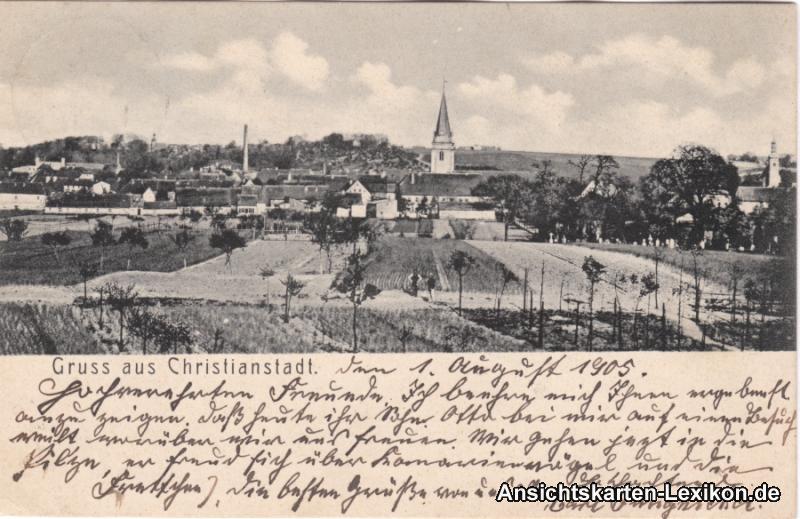 Gruss aus Christianstadt. Den 1. August 1905.
Hochverehrten Freunde. Ich beehre mich Ihnen ergebenst
anzu zeigen, daß heute ihr Sohn Otto bei mir auf einen Besuch
weilt worüber wir uns freuen. Wir gehen jezt in die
Pilze, er freud sich über Kanarienvögel und die
Frettchen, die besten Grüße von
Ansichtskarten-Lexikon.de